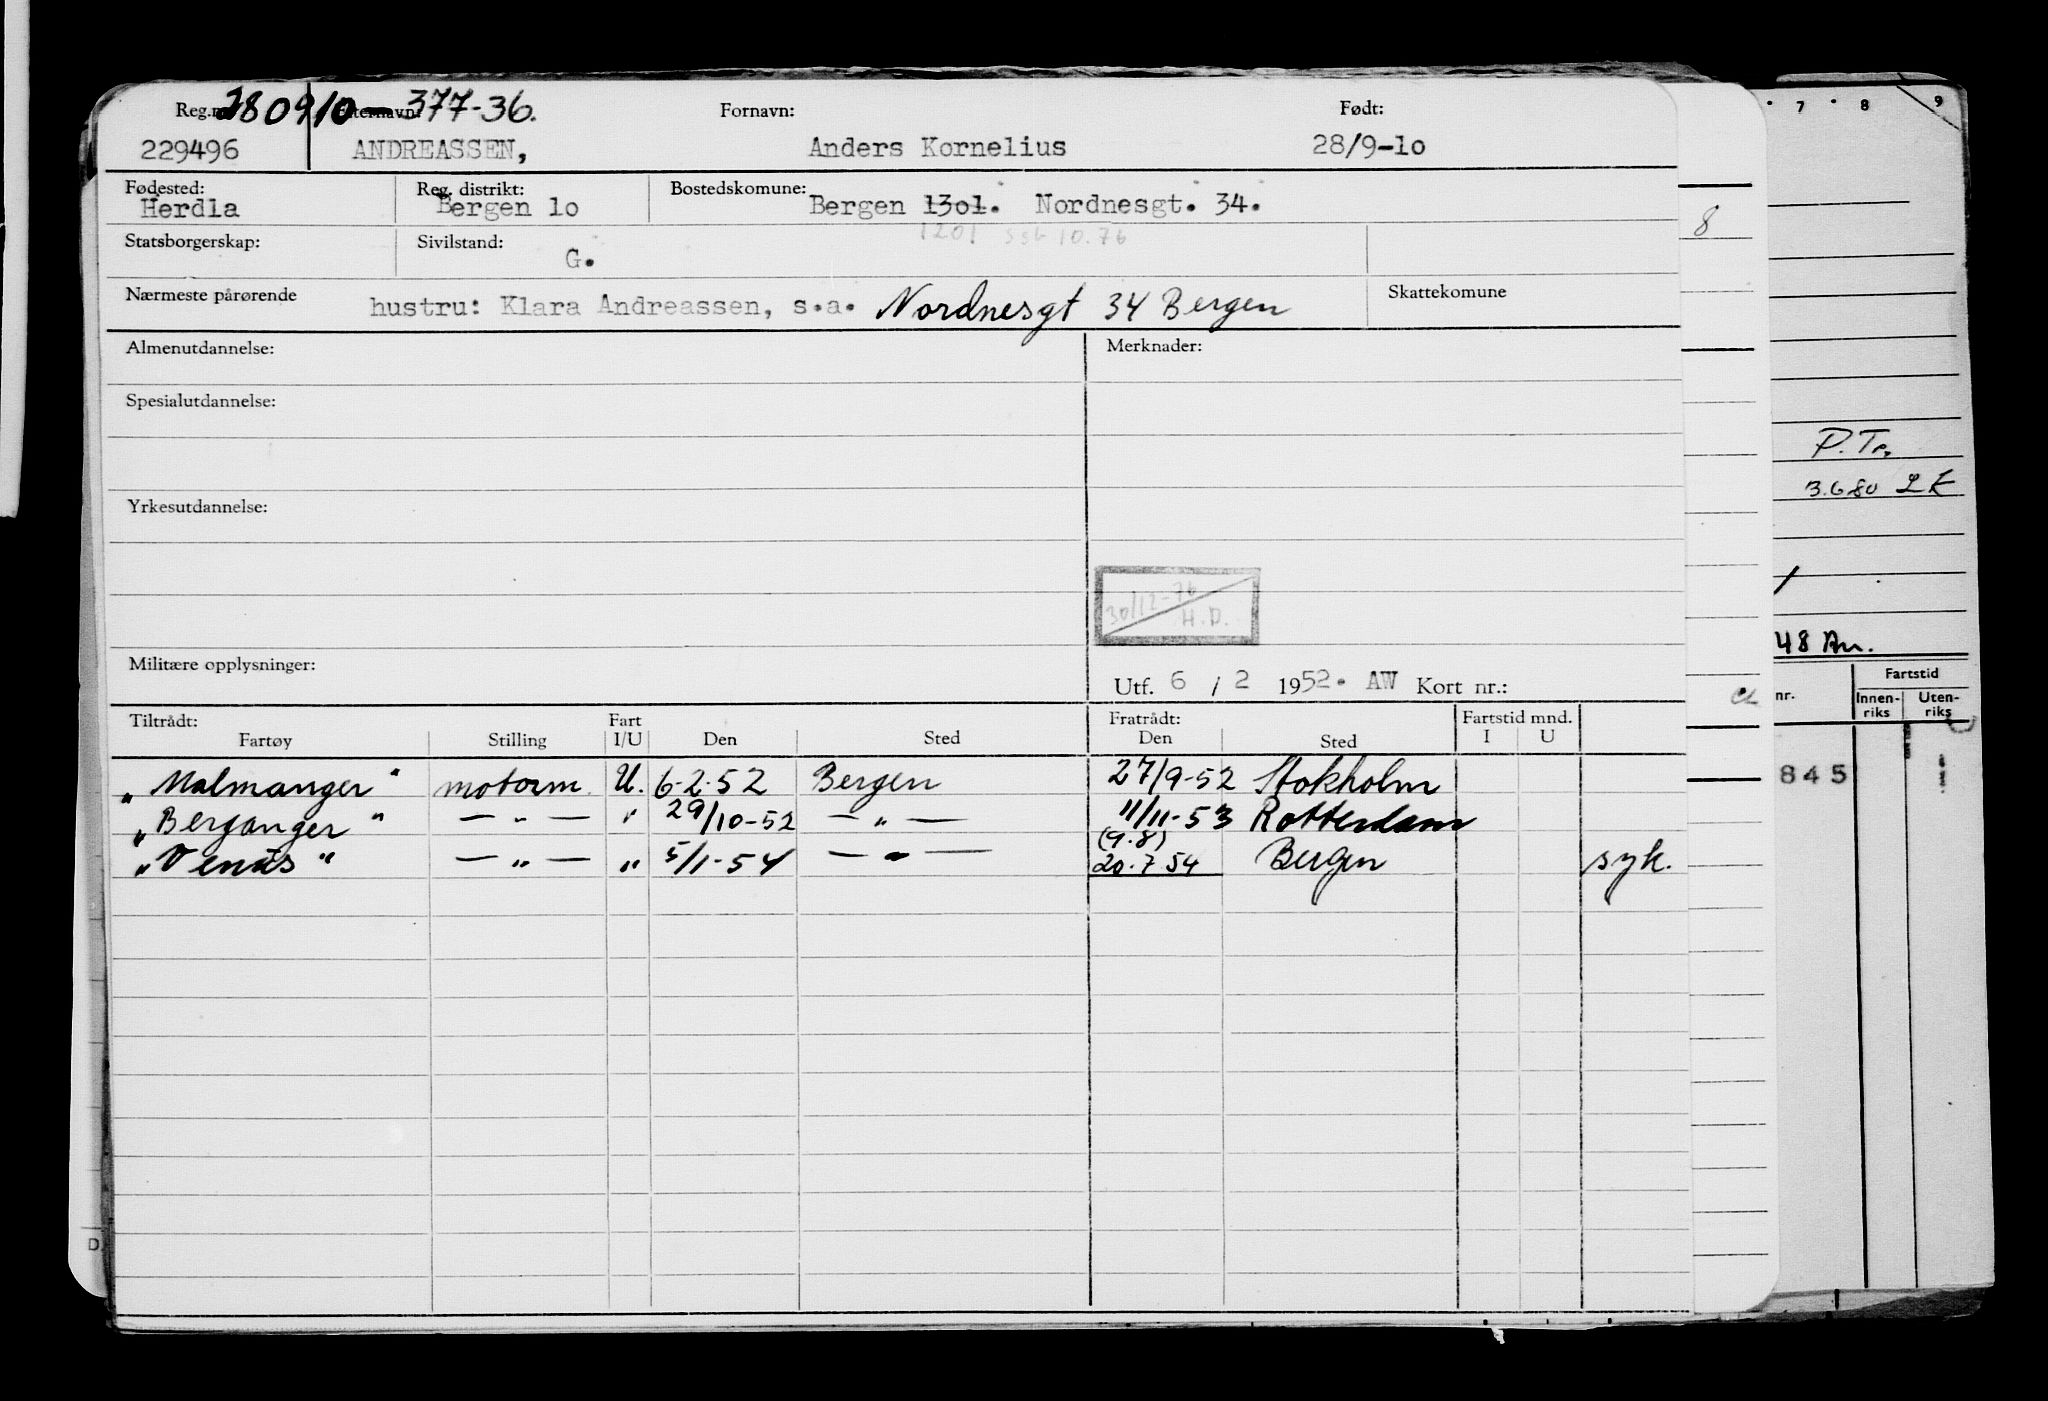 280910-377-36.
Reg.nr. Etternavn: Fornavn: Født:
229496 ANDREASSEN, Anders Kornelius 28/9-1o
Fødested: Reg. distrikt: Bostedskomune:
Herdla Bergen 1o Bergen 13o1. Nordnesgt. 34.
1201 ssb 10.76
Statsborgerskap: Sivilstand:
G.
Nærmeste pårørende Skattekomune
hustru: Klara Andreassen, s.a. Nordnesgt 34 Bergen
Almenutdannelse: Merknader:
Spesialutdannelse:
Yrkesutdannelse:
30/12-76
H.D.
Militære opplysninger:
Utf. 6 / 2 1952. AW Kort nr.:
Tiltrådt: Fart Fratrådt: Fartstid mnd.
Fartøy Stilling I/U Den Sted Den Sted I U
„Malmanger" motorm. U. 6-2-52 Bergen 27/9-52 Stokholm
„Berganger" — " — " 29/10-52 — " — 11/11-53 Rotterdam
(9.8)
„Venus" — " — " 5/1-54 — " — 20.7 54 Bergen syk.
7 8 9
8
P.Tr.
3.6.80 LK
48 An.
Fartstid
nr. Innen-riks Uten-riks
845
D.